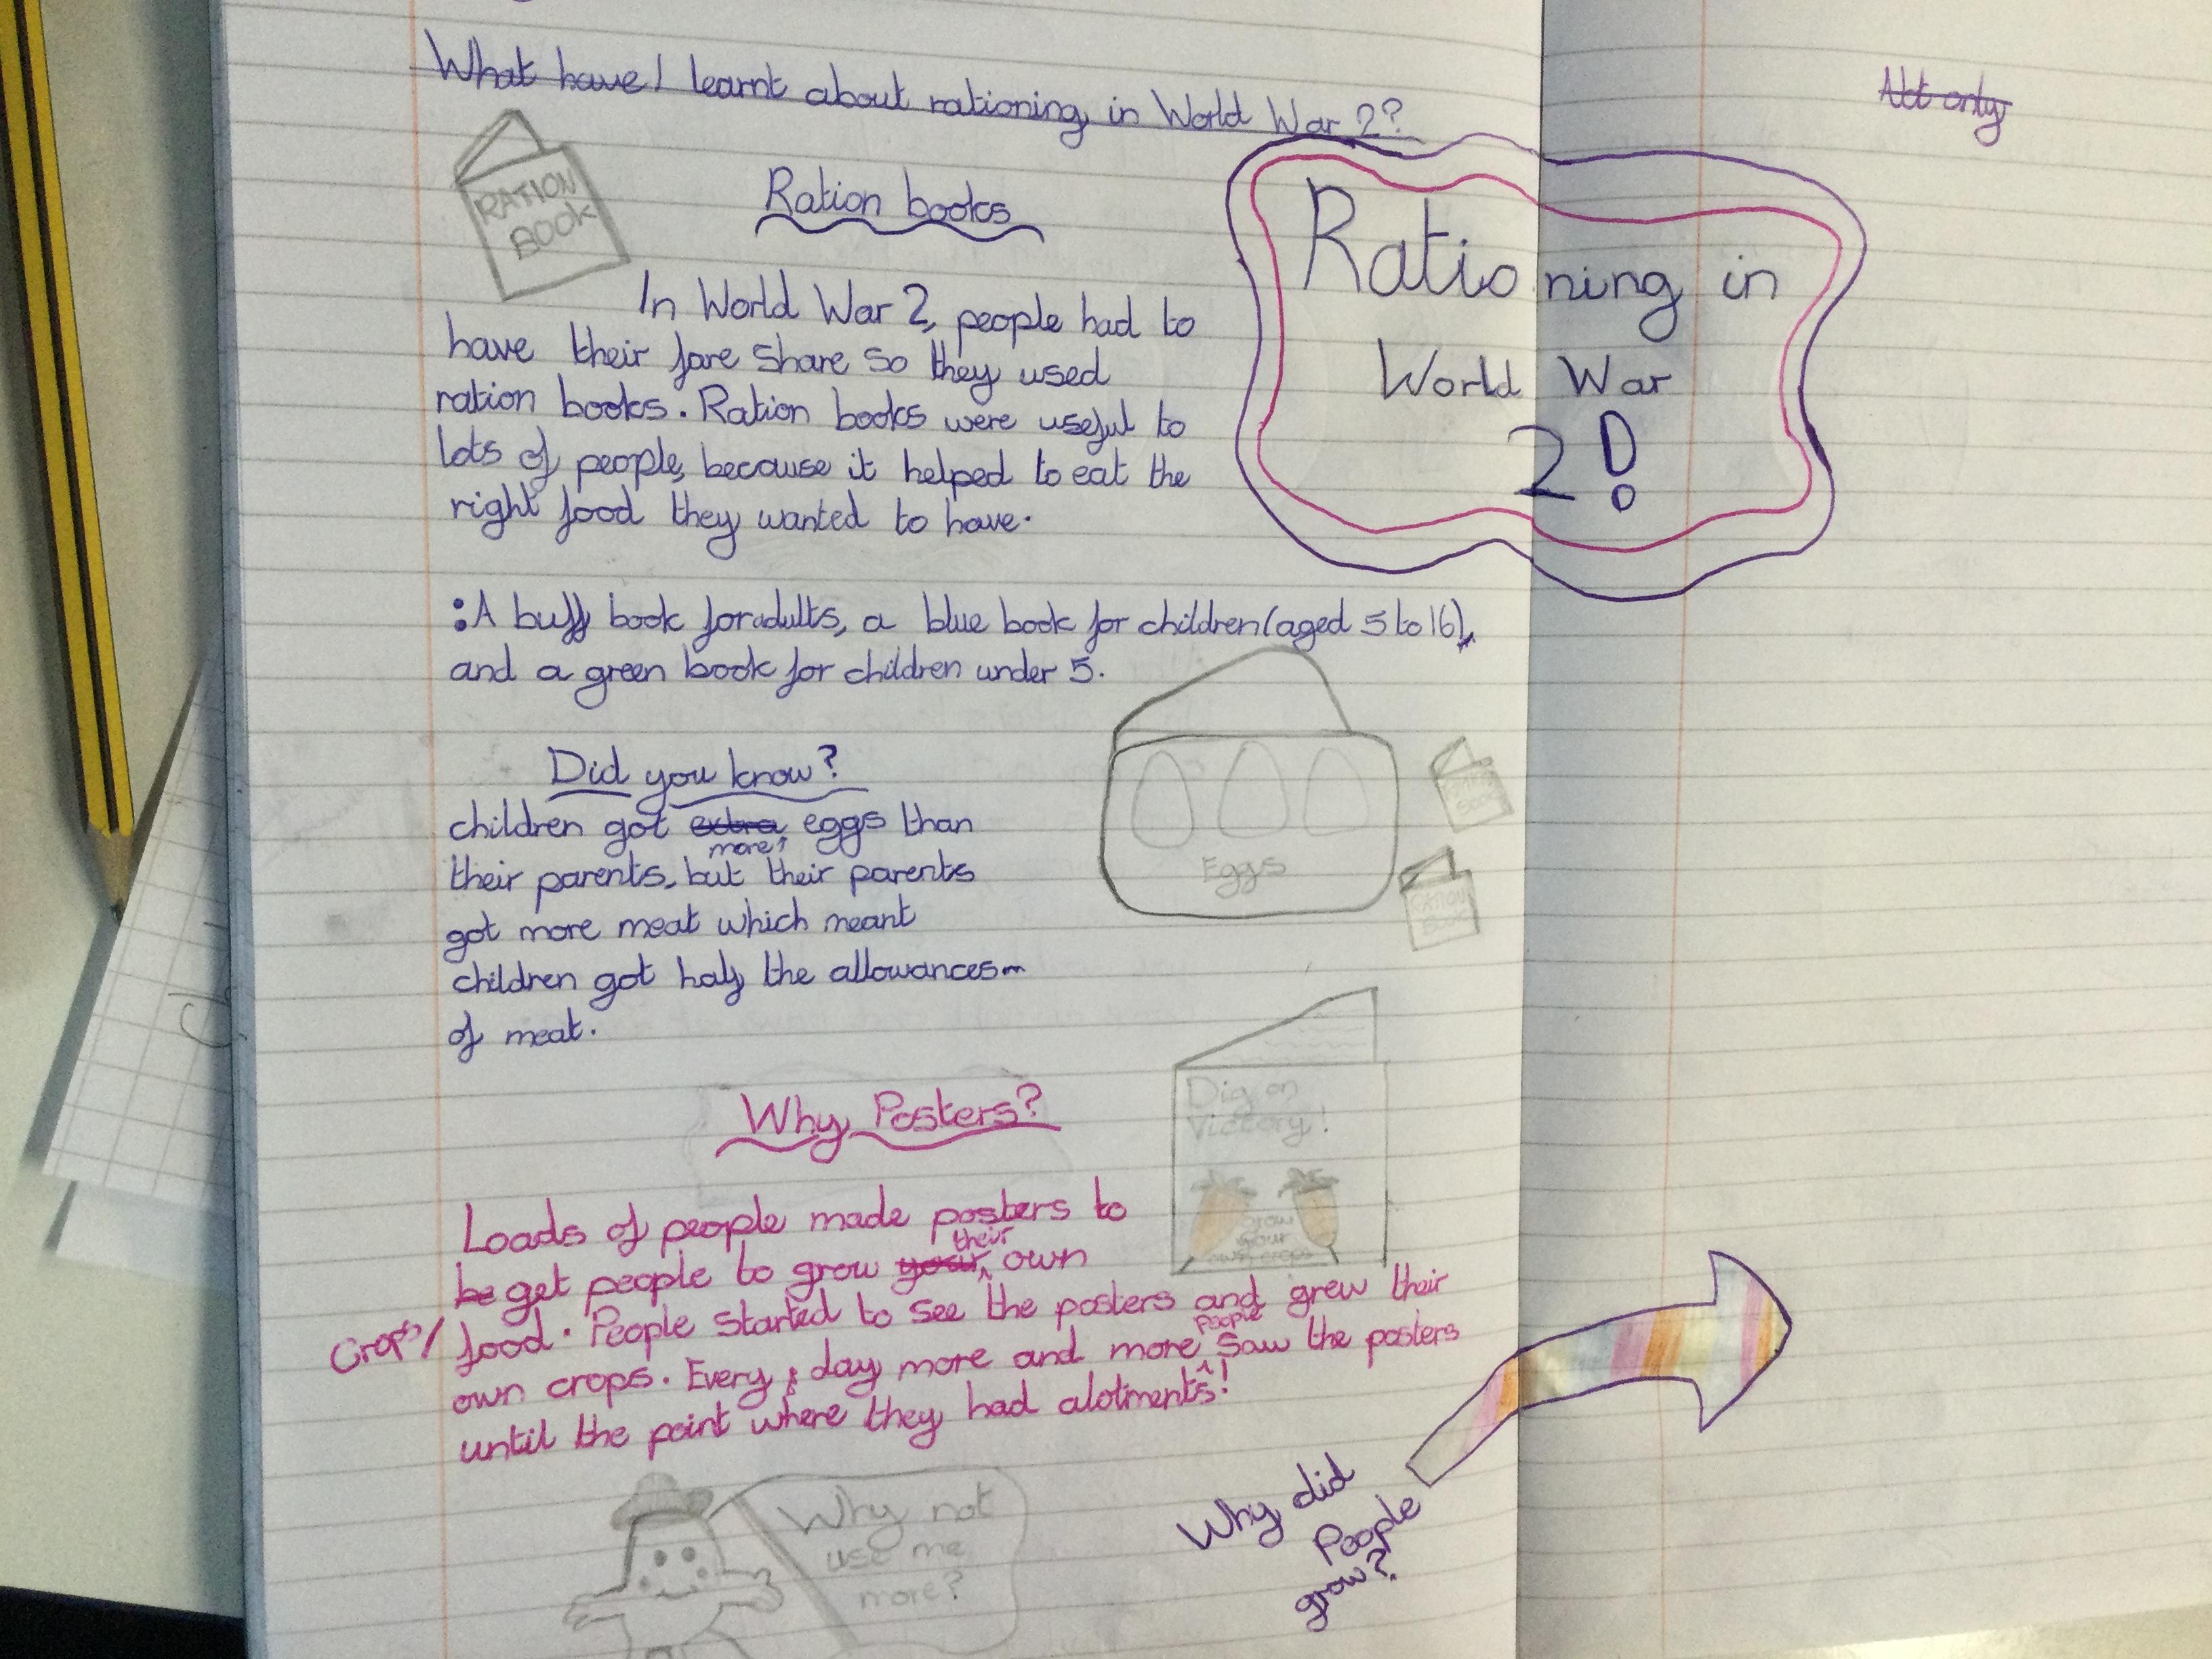 What have I learnt about rationing in World War 2?
Not only
RATION
BOOK
Ration books
Rationing in
World War
2!
In World War 2, people had to
have their fare share so they used
ration books. Ration books were useful to
lots of people, because it helped to eat the
right food they wanted to have.
:A buff book for adults, a blue book for children (aged 5 to 16),
and a green book for children under 5.
Did you know?
children got extra eggs than
more
their parents, but their parents
got more meat which meant
children got half the allowances
of meat.
Eggs
RATION
BOOK
RATION
BOOK
Why Posters?
Dig on
Victory!
Grow
your
own crops
Loads of people made posters to
their
be get people to grow your own
Crops/ food. People started to see the posters and grew their
people
own crops. Every day more and more saw the posters
until the point where they had alotments!
Why not
use me
more?
Why did
People
grow?